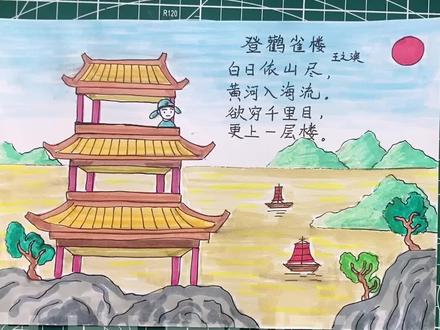 R120
登鹳雀楼
王之涣
白日依山尽，
黄河入海流。
欲穷千里目，
更上一层楼。